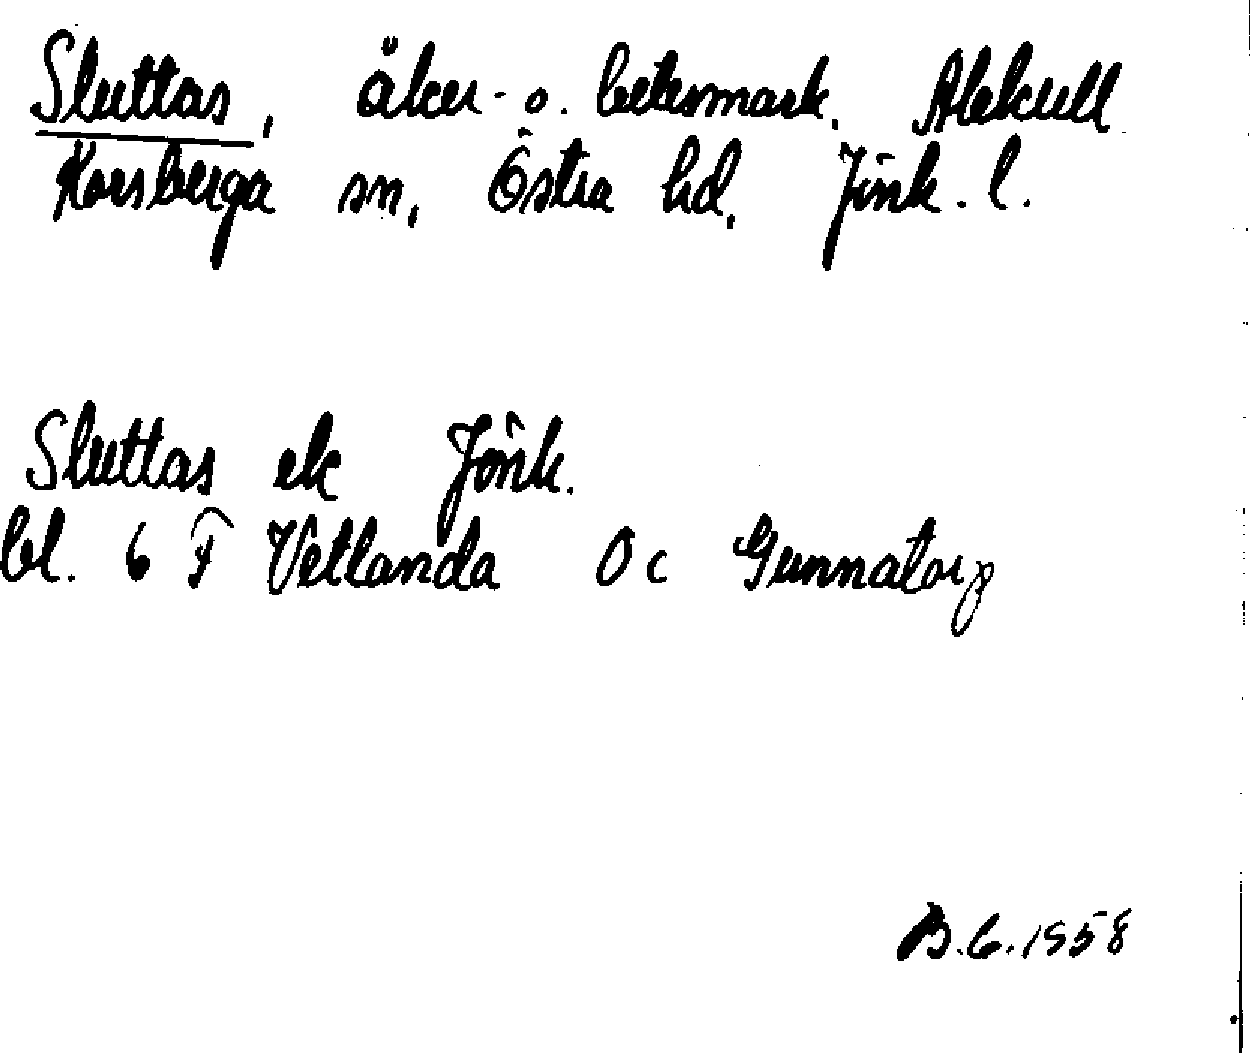 Sluttas, åker- o. betesmark. Alekull
Korsberga sn, Östra hd, Jönk. l.
Sluttas ek Jönk.
bl. 6 F Vetlanda 0 c Gunnatorp
B.G. 1958